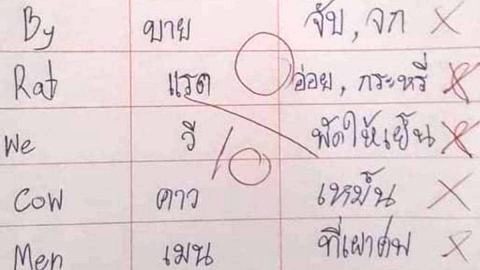 By บาย จับ, จก
Rat แรด อ่อย, กระหรี่
We วี พัดให้เย็น
Cow คาว เหม็น
Men เมน ที่เผาศพ